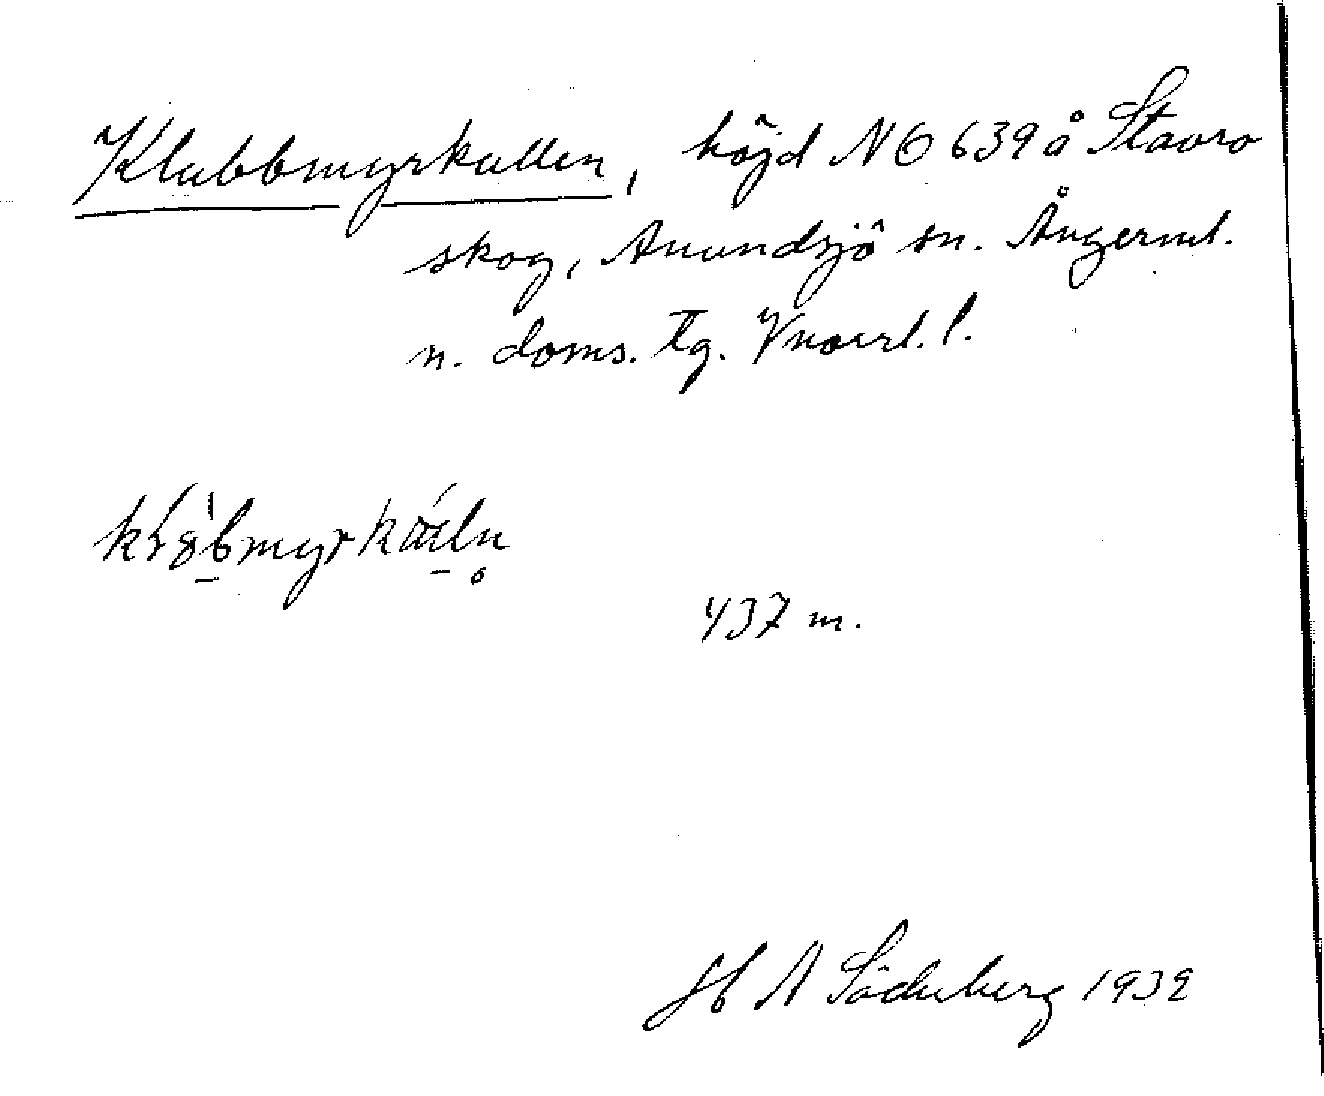 Klubbmyrkullen, höjd NÖ 639 å Stavro
skog, Anundsjö sn. Ångerml.
n. doms. tg. Vnorrl. l.
437 m.
H A Söderberg 1932